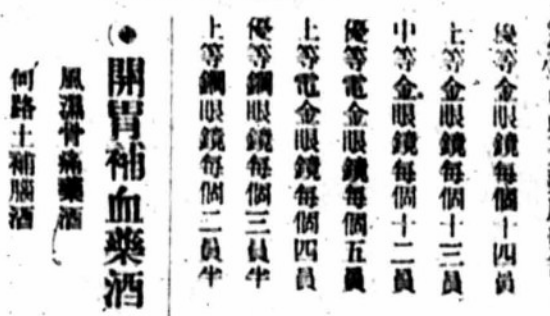 優等金眼鏡每個十四員
上等金眼鏡每個十三員
中等金眼鏡每個十二員
優等電金眼鏡每個五員
上等電金眼鏡每個四員
優等鋼眼鏡每個三員半
上等鋼眼鏡每個二員半
開胃補血藥酒
風濕骨痛藥酒
何路士補腦酒